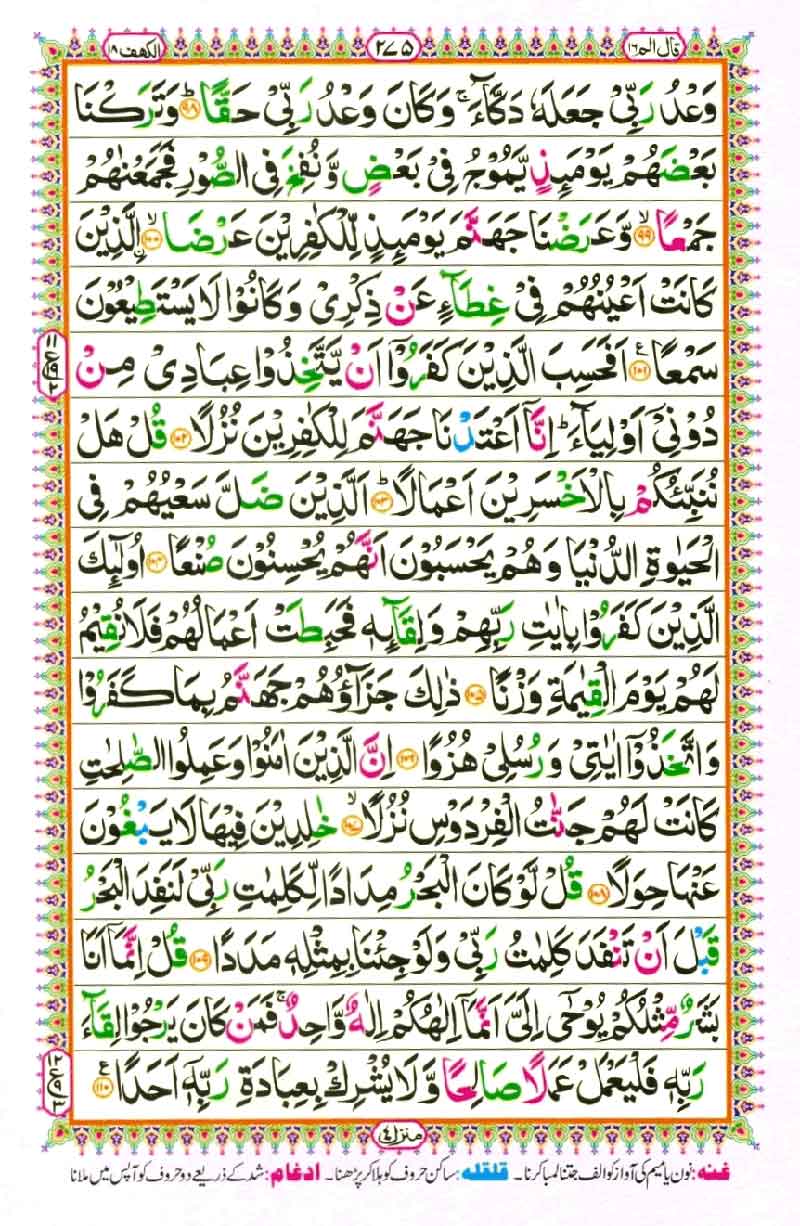 قال الم ۱۶ ۲۷۵ الكهف ۱۸
وَعْدُ رَبِّیْ جَعَلَهٗ دَكَّآءَ ۚ وَكَانَ وَعْدُ رَبِّیْ حَقًّا ؕ﴿۹۸﴾ وَتَرَكْنَا
بَعْضَهُمْ یَوْمَىِٕذٍ یَّمُوْجُ فِیْ بَعْضٍ وَّنُفِخَ فِی الصُّوْرِ فَجَمَعْنٰهُمْ
جَمْعًا ۙ﴿۹۹﴾ وَّعَرَضْنَا جَهَنَّمَ یَوْمَىِٕذٍ لِّلْكٰفِرِیْنَ عَرْضَا ۙ﴿۱۰۰﴾ ِ۟الَّذِیْنَ
كَانَتْ اَعْیُنُهُمْ فِیْ غِطَآءٍ عَنْ ذِكْرِیْ وَكَانُوْا لَا یَسْتَطِیْعُوْنَ
سَمْعًا ﴿۱۰۱﴾ اَفَحَسِبَ الَّذِیْنَ كَفَرُوْۤا اَنْ یَّتَّخِذُوْا عِبَادِیْ مِنْ
دُوْنِیْۤ اَوْلِیَآءَ ؕ اِنَّاۤ اَعْتَدْنَا جَهَنَّمَ لِلْكٰفِرِیْنَ نُزُلًا ﴿۱۰۲﴾ قُلْ هَلْ
نُنَبِّئُكُمْ بِالْاَخْسَرِیْنَ اَعْمَالًا ؕ﴿۱۰۳﴾ اَلَّذِیْنَ ضَلَّ سَعْیُهُمْ فِی
الْحَیٰوةِ الدُّنْیَا وَهُمْ یَحْسَبُوْنَ اَنَّهُمْ یُحْسِنُوْنَ صُنْعًا ﴿۱۰۴﴾ اُولٰٓىِٕكَ
الَّذِیْنَ كَفَرُوْا بِاٰیٰتِ رَبِّهِمْ وَلِقَآىِٕهٖ فَحَبِطَتْ اَعْمَالُهُمْ فَلَا نُقِیْمُ
لَهُمْ یَوْمَ الْقِیٰمَةِ وَزْنًا ﴿۱۰۵﴾ ذٰلِكَ جَزَآؤُهُمْ جَهَنَّمُ بِمَا كَفَرُوْا
وَاتَّخَذُوْۤا اٰیٰتِیْ وَرُسُلِیْ هُزُوًا ﴿۱۰۶﴾ اِنَّ الَّذِیْنَ اٰمَنُوْا وَعَمِلُوا الصّٰلِحٰتِ
كَانَتْ لَهُمْ جَنّٰتُ الْفِرْدَوْسِ نُزُلًا ۙ﴿۱۰۷﴾ خٰلِدِیْنَ فِیْهَا لَا یَبْغُوْنَ
عَنْهَا حِوَلًا ﴿۱۰۸﴾ قُلْ لَّوْ كَانَ الْبَحْرُ مِدَادًا لِّكَلِمٰتِ رَبِّیْ لَنَفِدَ الْبَحْرُ
قَبْلَ اَنْ تَنْفَدَ كَلِمٰتُ رَبِّیْ وَلَوْ جِئْنَا بِمِثْلِهٖ مَدَدًا ﴿۱۰۹﴾ قُلْ اِنَّمَاۤ اَنَا
بَشَرٌ مِّثْلُكُمْ یُوْحٰۤی اِلَیَّ اَنَّمَاۤ اِلٰهُكُمْ اِلٰهٌ وَّاحِدٌ ۚ فَمَنْ كَانَ یَرْجُوْا لِقَآءَ
رَبِّهٖ فَلْیَعْمَلْ عَمَلًا صَالِحًا وَّلَا یُشْرِكْ بِعِبَادَةِ رَبِّهٖۤ اَحَدًا ﴿۱۱۰﴾
منزل ۴
غنه: نون یا میم کی آواز کو الف جتنا لمبا کرنا۔ قلقله: ساکن حروف کو ہلا کر پڑھنا۔ ادغام: شد کے ذریعے دو حروف کو آپس میں ملانا